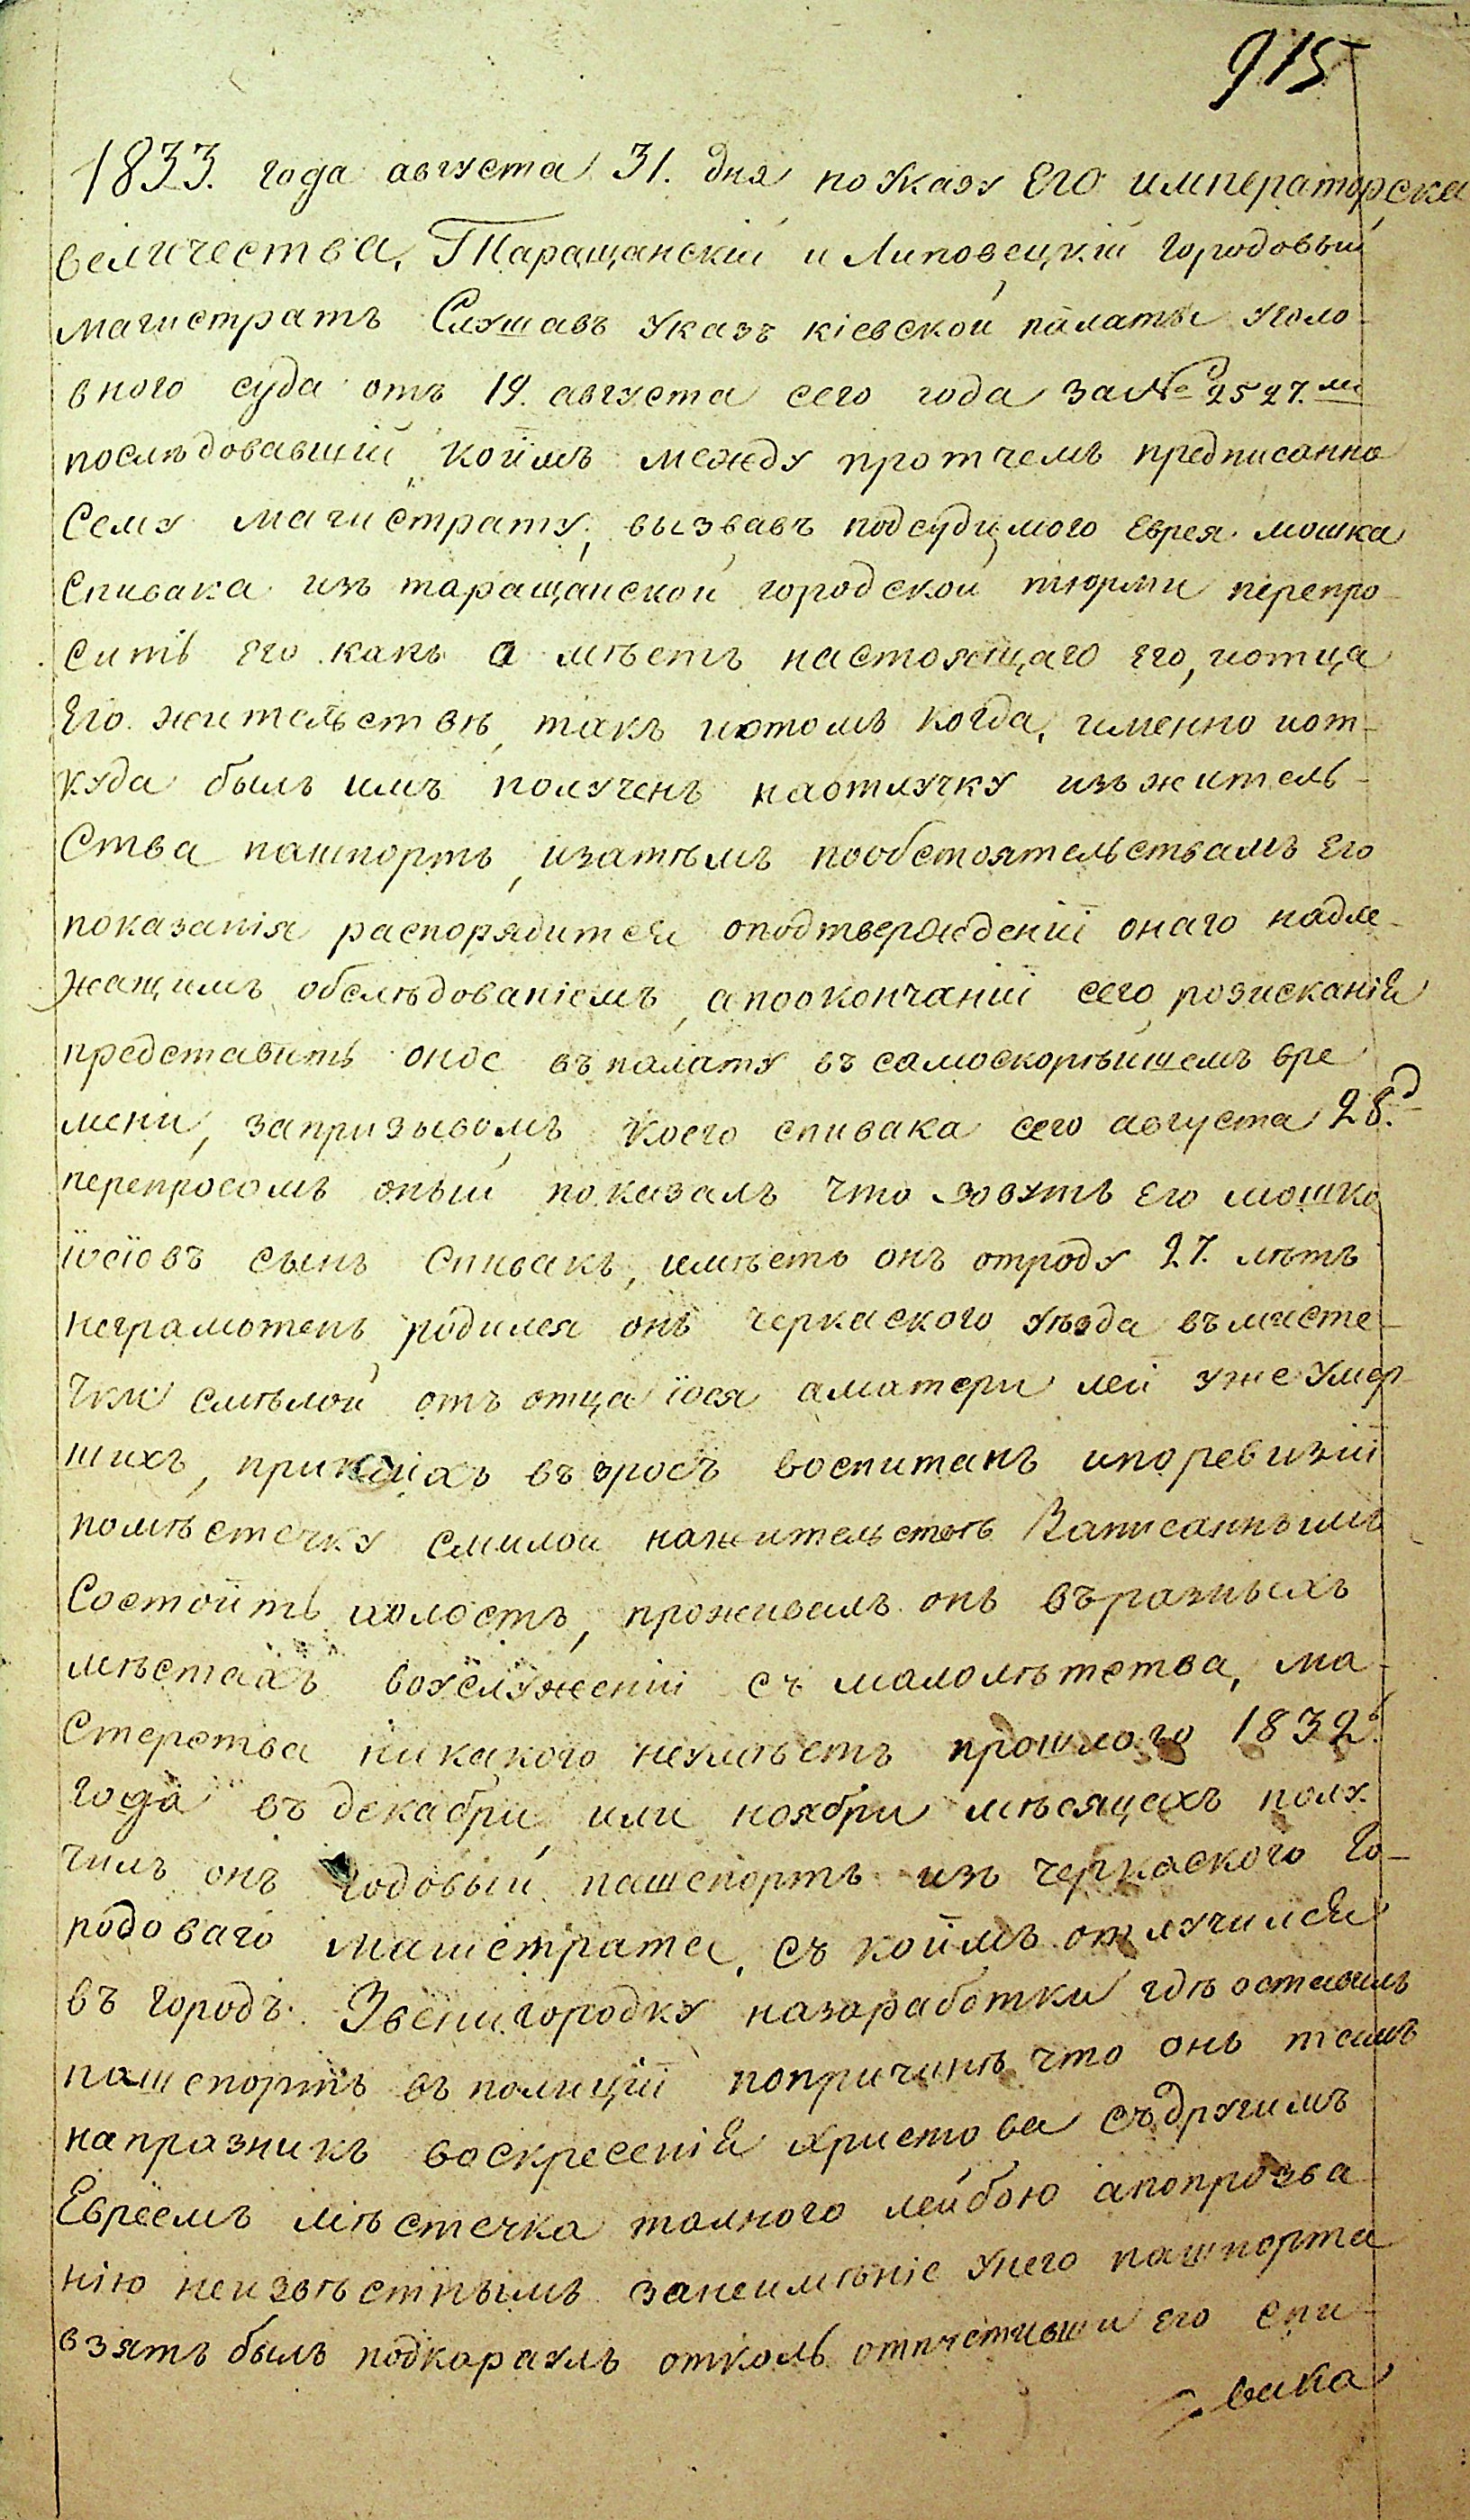 915
1833. года августа 31. дня по Указу Его императорска
величества, Таращанскій и Липовецкій городовый
магистратъ Слушавъ Указъ кіевской палаты уголо-
вного суда отъ 19. августа сего года за № 2527.мъ
последовавшій коимъ между протчемъ предписанно
Сему магистрату, вызвавъ подсудимого Еврея мошка
Спивака изъ таращанской городской тюрми перепро-
сить его какъ о местѣ настоящаго его, иотца
Его жительствѣ, такъ иотомъ когда, именно иот-
куда былъ имъ полученъ наотлучку изъ житель-
Ства пашпортъ, изатѣмъ пообстоятельствамъ его
показанія распорядится оподтвержденіи онаго надле-
жащимъ обслѣдованіемъ, апоокончаніи сего розисканія
представить оное въ палату въ самоскорѣйшемъ вре
мени, запризывомъ коего спивака сего августа 28.д
перепросомъ оный показалъ что зовутъ его мошко
іосіовъ сынъ Спивакъ, имѣетъ онъ отроду 27. лѣтъ
неграмотенъ, родился онъ черкаского уѣзда въ мѣсте-
чки смѣлой отъ отца іося аматери леи уже Умер-
шихъ, при коихъ въ зросъ воспитанъ ипоревизіи
помѣстечку смилои нажительствѣ Записаннымъ
Состоитъ холостъ, проживалъ онъ въразныхъ
мѣстахъ воуслуженіи съ малолѣтства, ма-
Стерства никакого неумѣетъ прошлого 1832.
года въ декабри, или ноябри мѣсяцахъ полу-
чилъ онъ годовый пашепортъ изъ черкаского Го-
родоваго магистрата, съ коимъ отлучился
въ городъ Звенигородку назаработки гдѣ оставилъ
пашепортъ въ полиціи попричинѣ что онъ тамъ
напразникъ воскресенія христова съдругимъ
Евреемъ мѣстечка толного лейбою апопрозва
нію неизвѣстнымъ занеимѣніе Унего пашпорта
взятъ былъ подкараулъ отколь отпустивши его спи-
вака